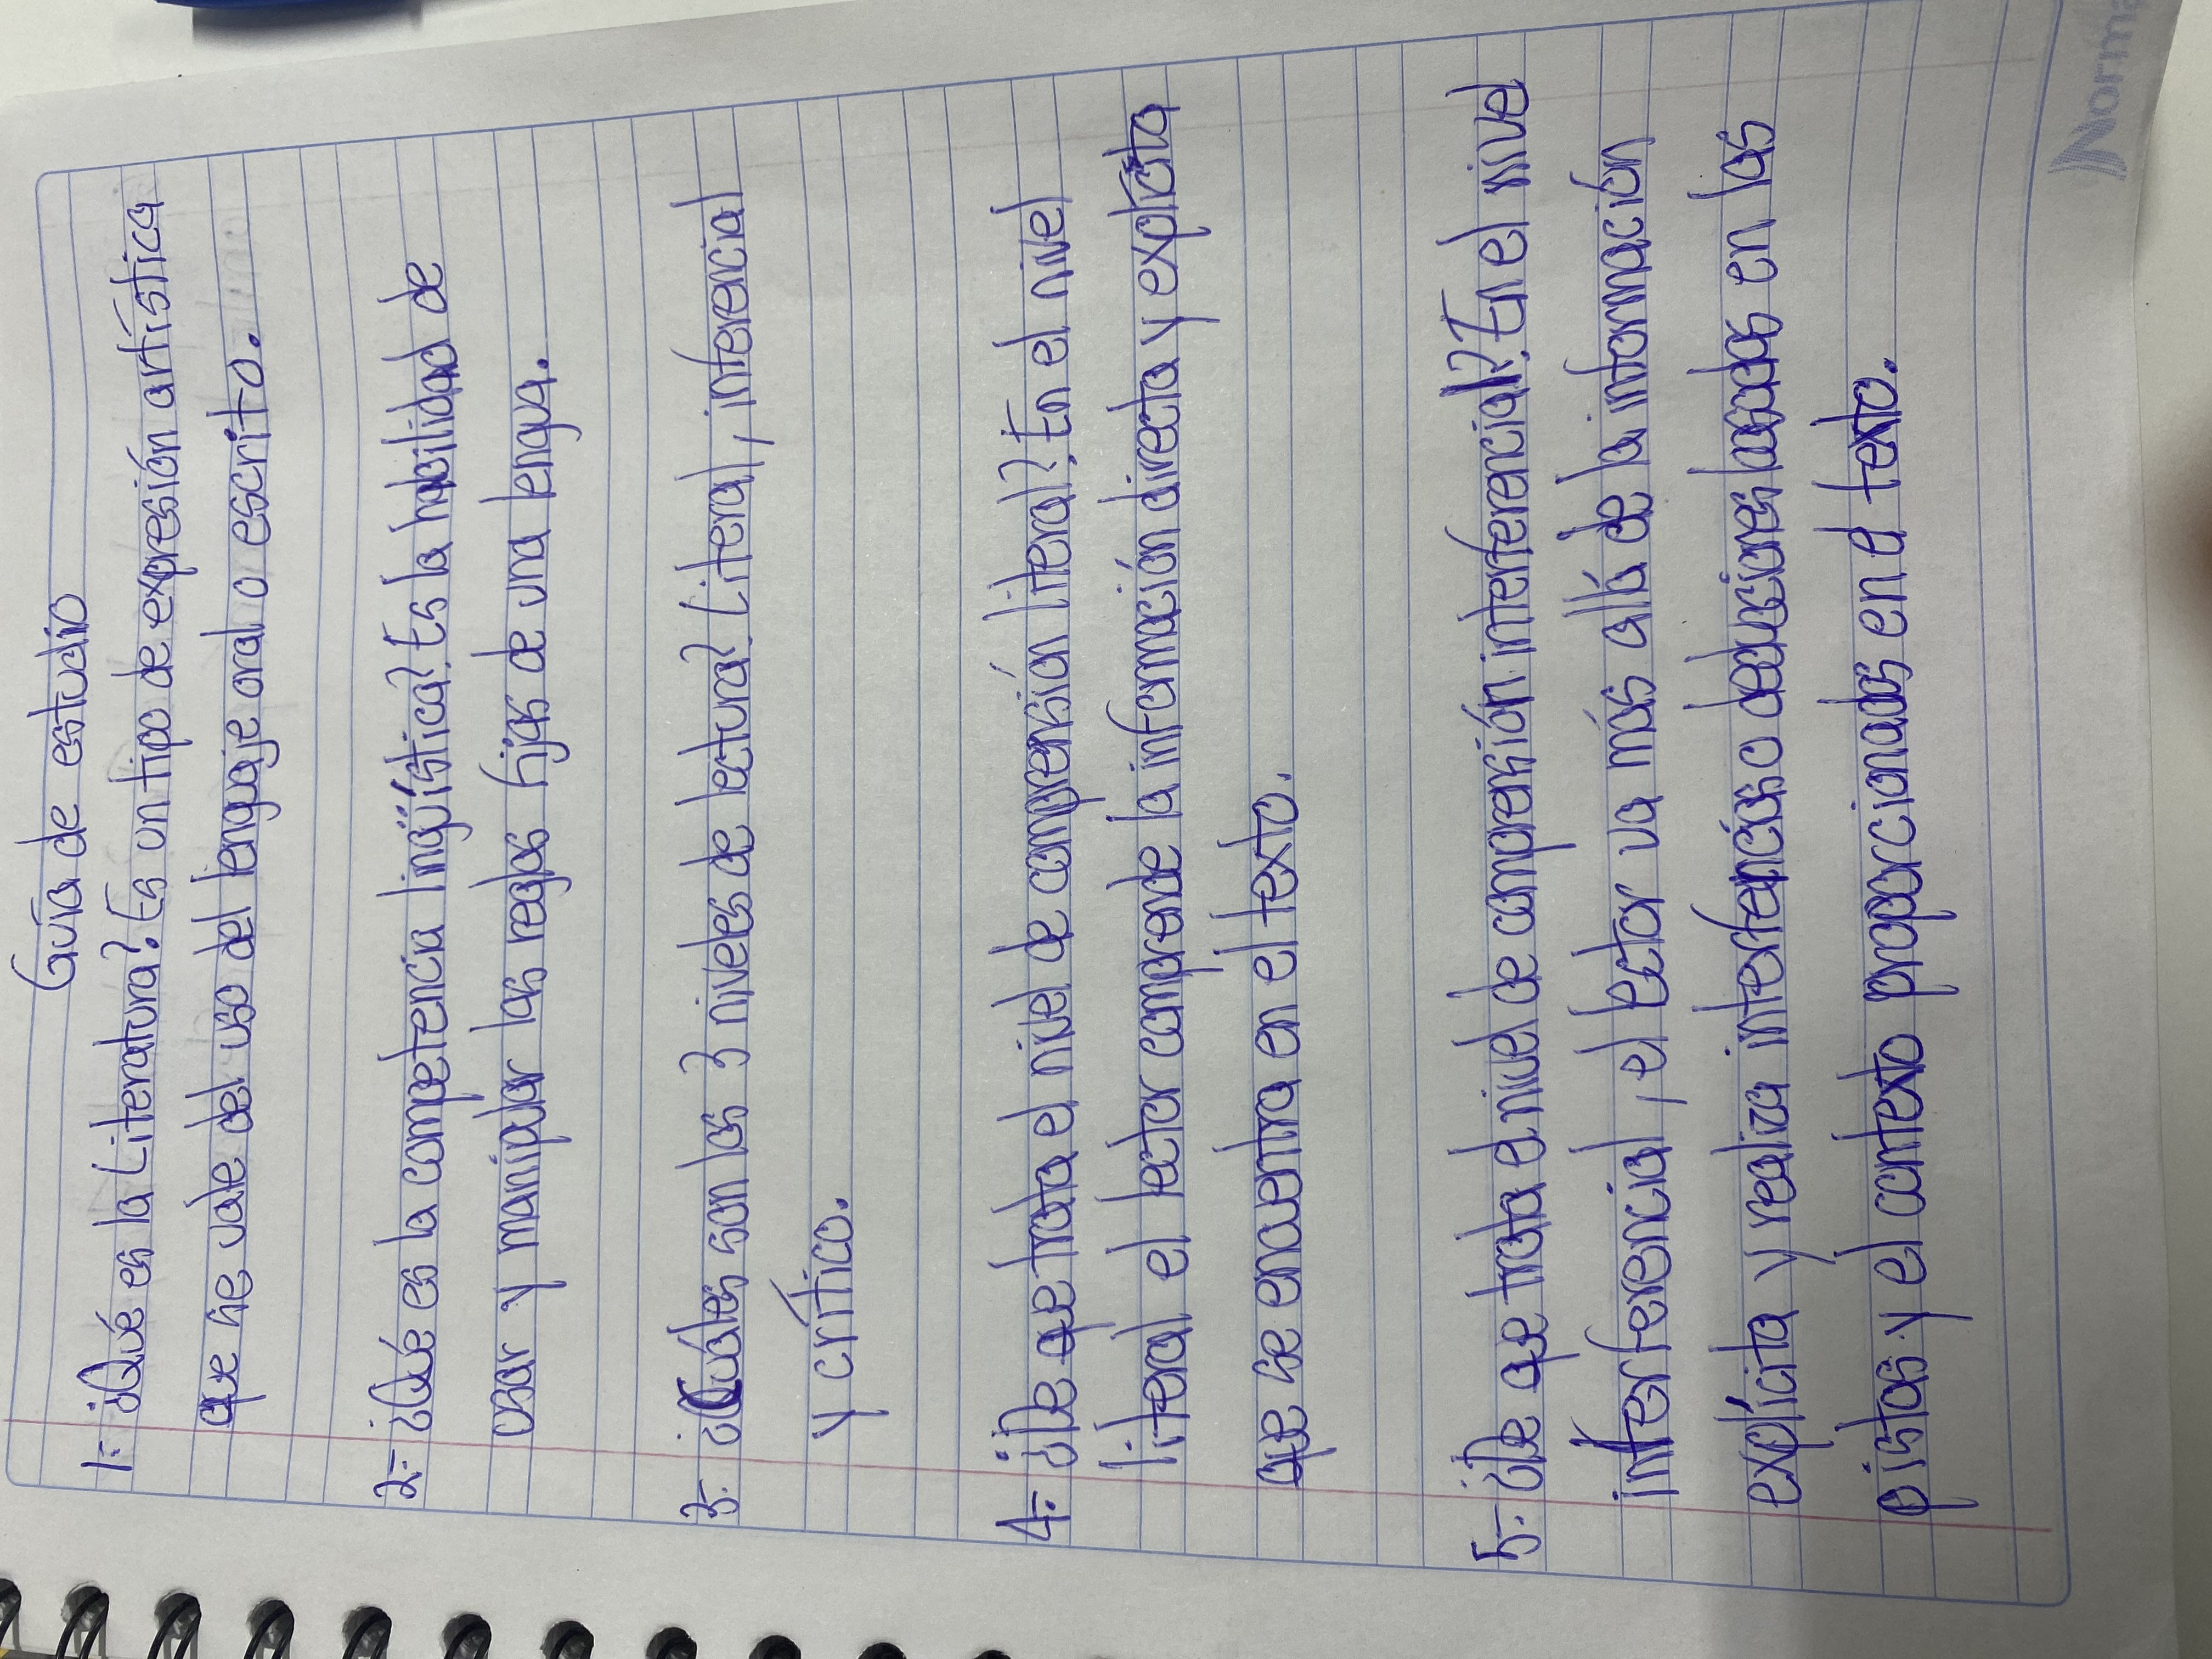 Guía de estudio
1.- ¿Qué es la Literatura?. Es un tipo de expresión artística
que se vale del uso del lenguaje oral o escrito.
2.- ¿Qué es la competencia lingüística?. Es la habilidad de
usar y manipular las reglas fijas de una lengua.
3.- ¿Cuáles son los 3 niveles de lectura?. Literal, inferencial
y crítico.
4.- ¿De que trata el nivel de comprensión literal?. En el nivel
literal el lector comprende la información directa y explícita
que se encuentra en el texto.
5.- ¿De que trata el nivel de comprensión interferencial?. En el nivel
interferencial, el lector va más allá de la información
explícita y realiza interfencias o deducciones basadas en las
pistas y el contexto proporcionados en el texto.